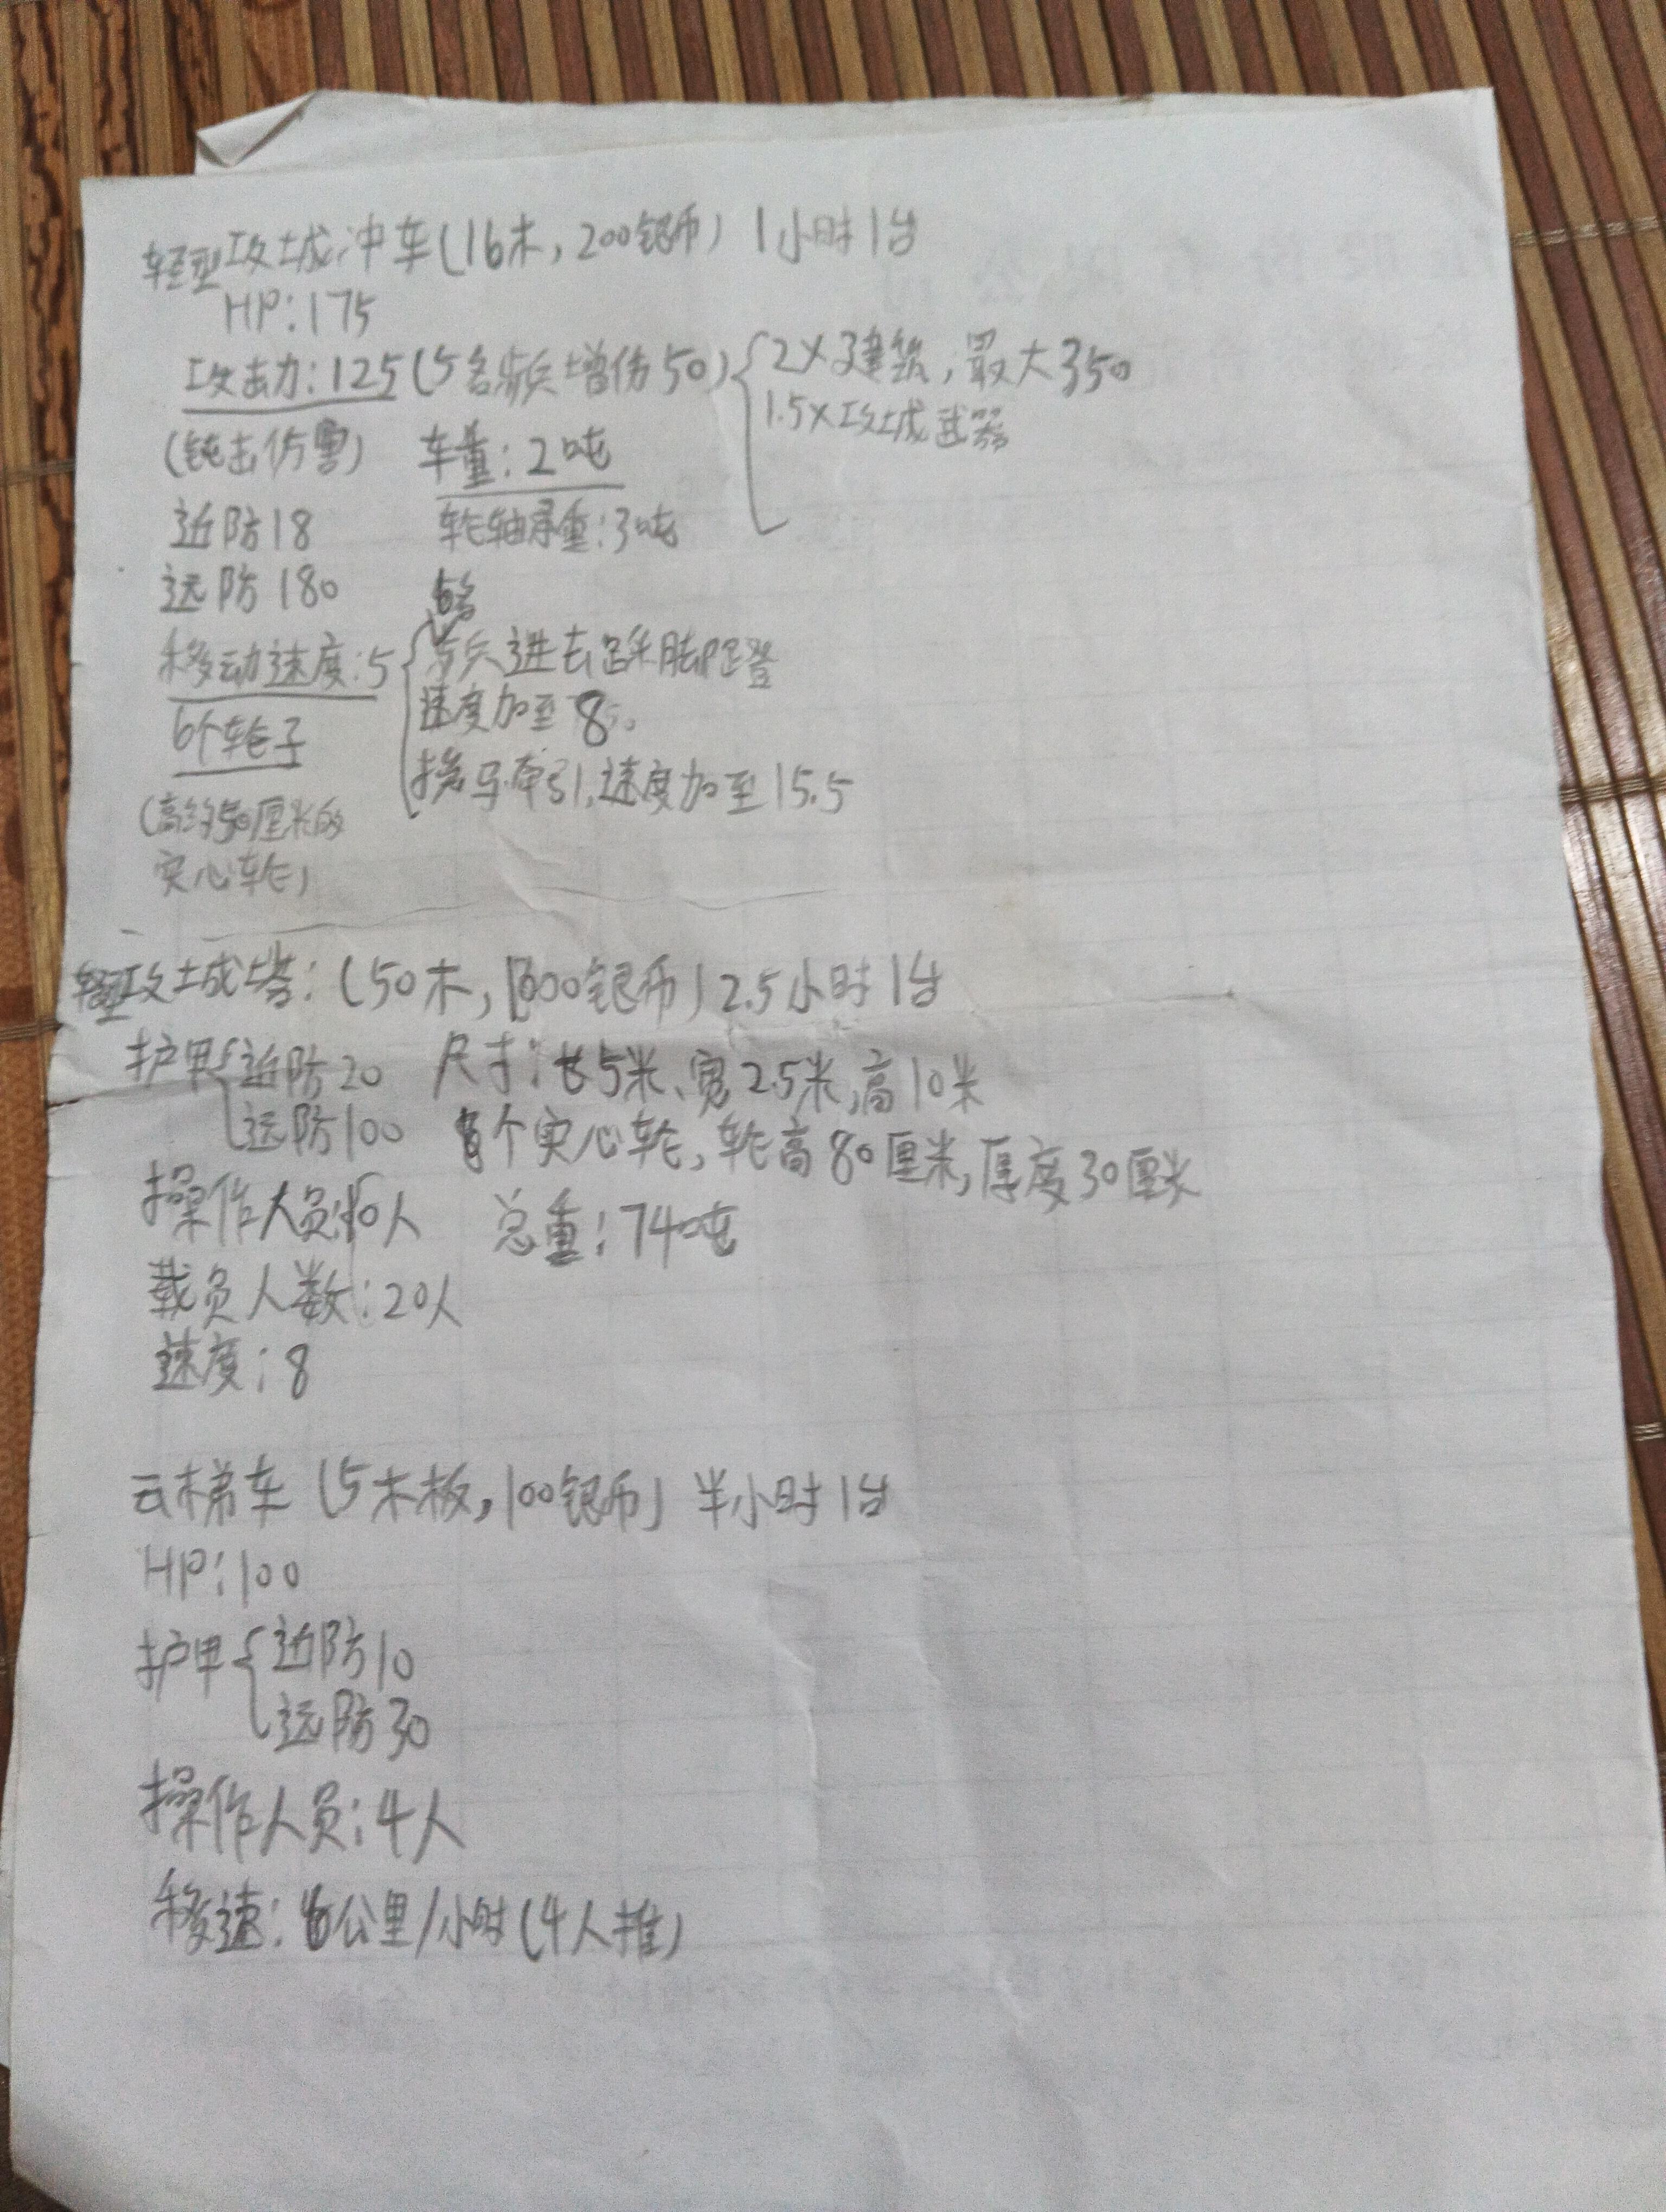 轻型攻城冲车(16木,200银币) 1小时1台
HP:175
攻击力:125(5名兵增伤50){2×建筑,最大350
1.5×攻城武器
(钝击伤害) 车重:2吨
近防18 轮轴承重:3吨
远防180 6名
移动速度:5 {步兵进去踩脚蹬
6个轮子 速度加至8。
换马牵引,速度加至15.5
(高约50厘米的
实心轮)
轻型攻城塔:(50木,银币) 2.5小时1台
护甲{近防20 尺寸:长5米、宽2.5米,高10米
远防100 个实心轮,轮高80厘米,厚度30厘米
操作人员:10人 总重:74吨
载员人数:20人
速度:8
云梯车(5木板,100银币) 半小时1台
HP:100
护甲{近防10
远防30
操作人员:4人
移速:6公里/小时(4人推)